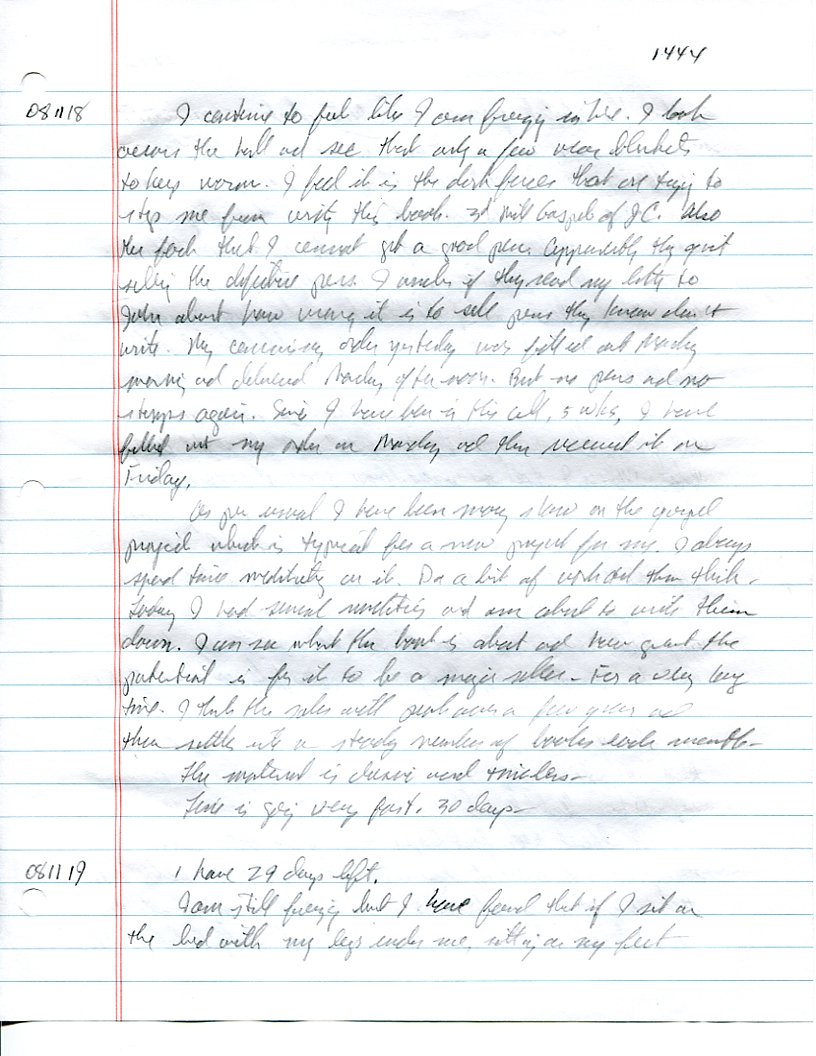 1444
081118 I continue to feel like I am freezing in here. I look
across the hall and see that only a few wear blankets
to keep warm. I feel it is the dark forces that are trying to
stop me from writing this book. 3rd Mill Gospel of J.C. Also
the fact that I cannot get a good pen. Apparently they quit
selling the defective pens. I wonder if they read my letter to
John about how wrong it is to sell pens they know don't
write. My commissary order yesterday was filled out Monday
morning and delivered Monday afternoon. But no pens and no
stamps again. Since I have been in this cell, 5 wks, I have
filled out my order on Monday and then received it on
Friday.
As per usual I have been moving slow on the gospel
project which is typical for a new project for me. I always
spend time meditating on it. Do a bit of work and then think.
Today I had several and am about to write them
down. I can see what the book is about and how great the
potential is for it to be a major seller. For a very long
time. I think the sales will peak over a few years and
then settle into a steady number of books each month.
The material is and timeless.
Time is going very fast. 30 days.
081119 I have 29 days left.
I am still freezing but I have found that if I sit on
the bed with my legs under me, sitting on my feet